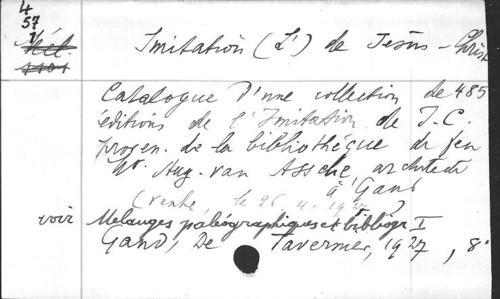 4
57
V
Mel
1101
Imitation (L') de Jésus-Christ
Catalogue d'une collection de 485
éditions de l'Imitation de J.C.
proven. de la bibliothèque de feu
Mr. Aug. van Assche, architecte
à Gand
(vente, le 26. 4. 1927)
voir Mélanges paléographiques et bibliogr I
Gand, De Tavernier, 1927, 8°